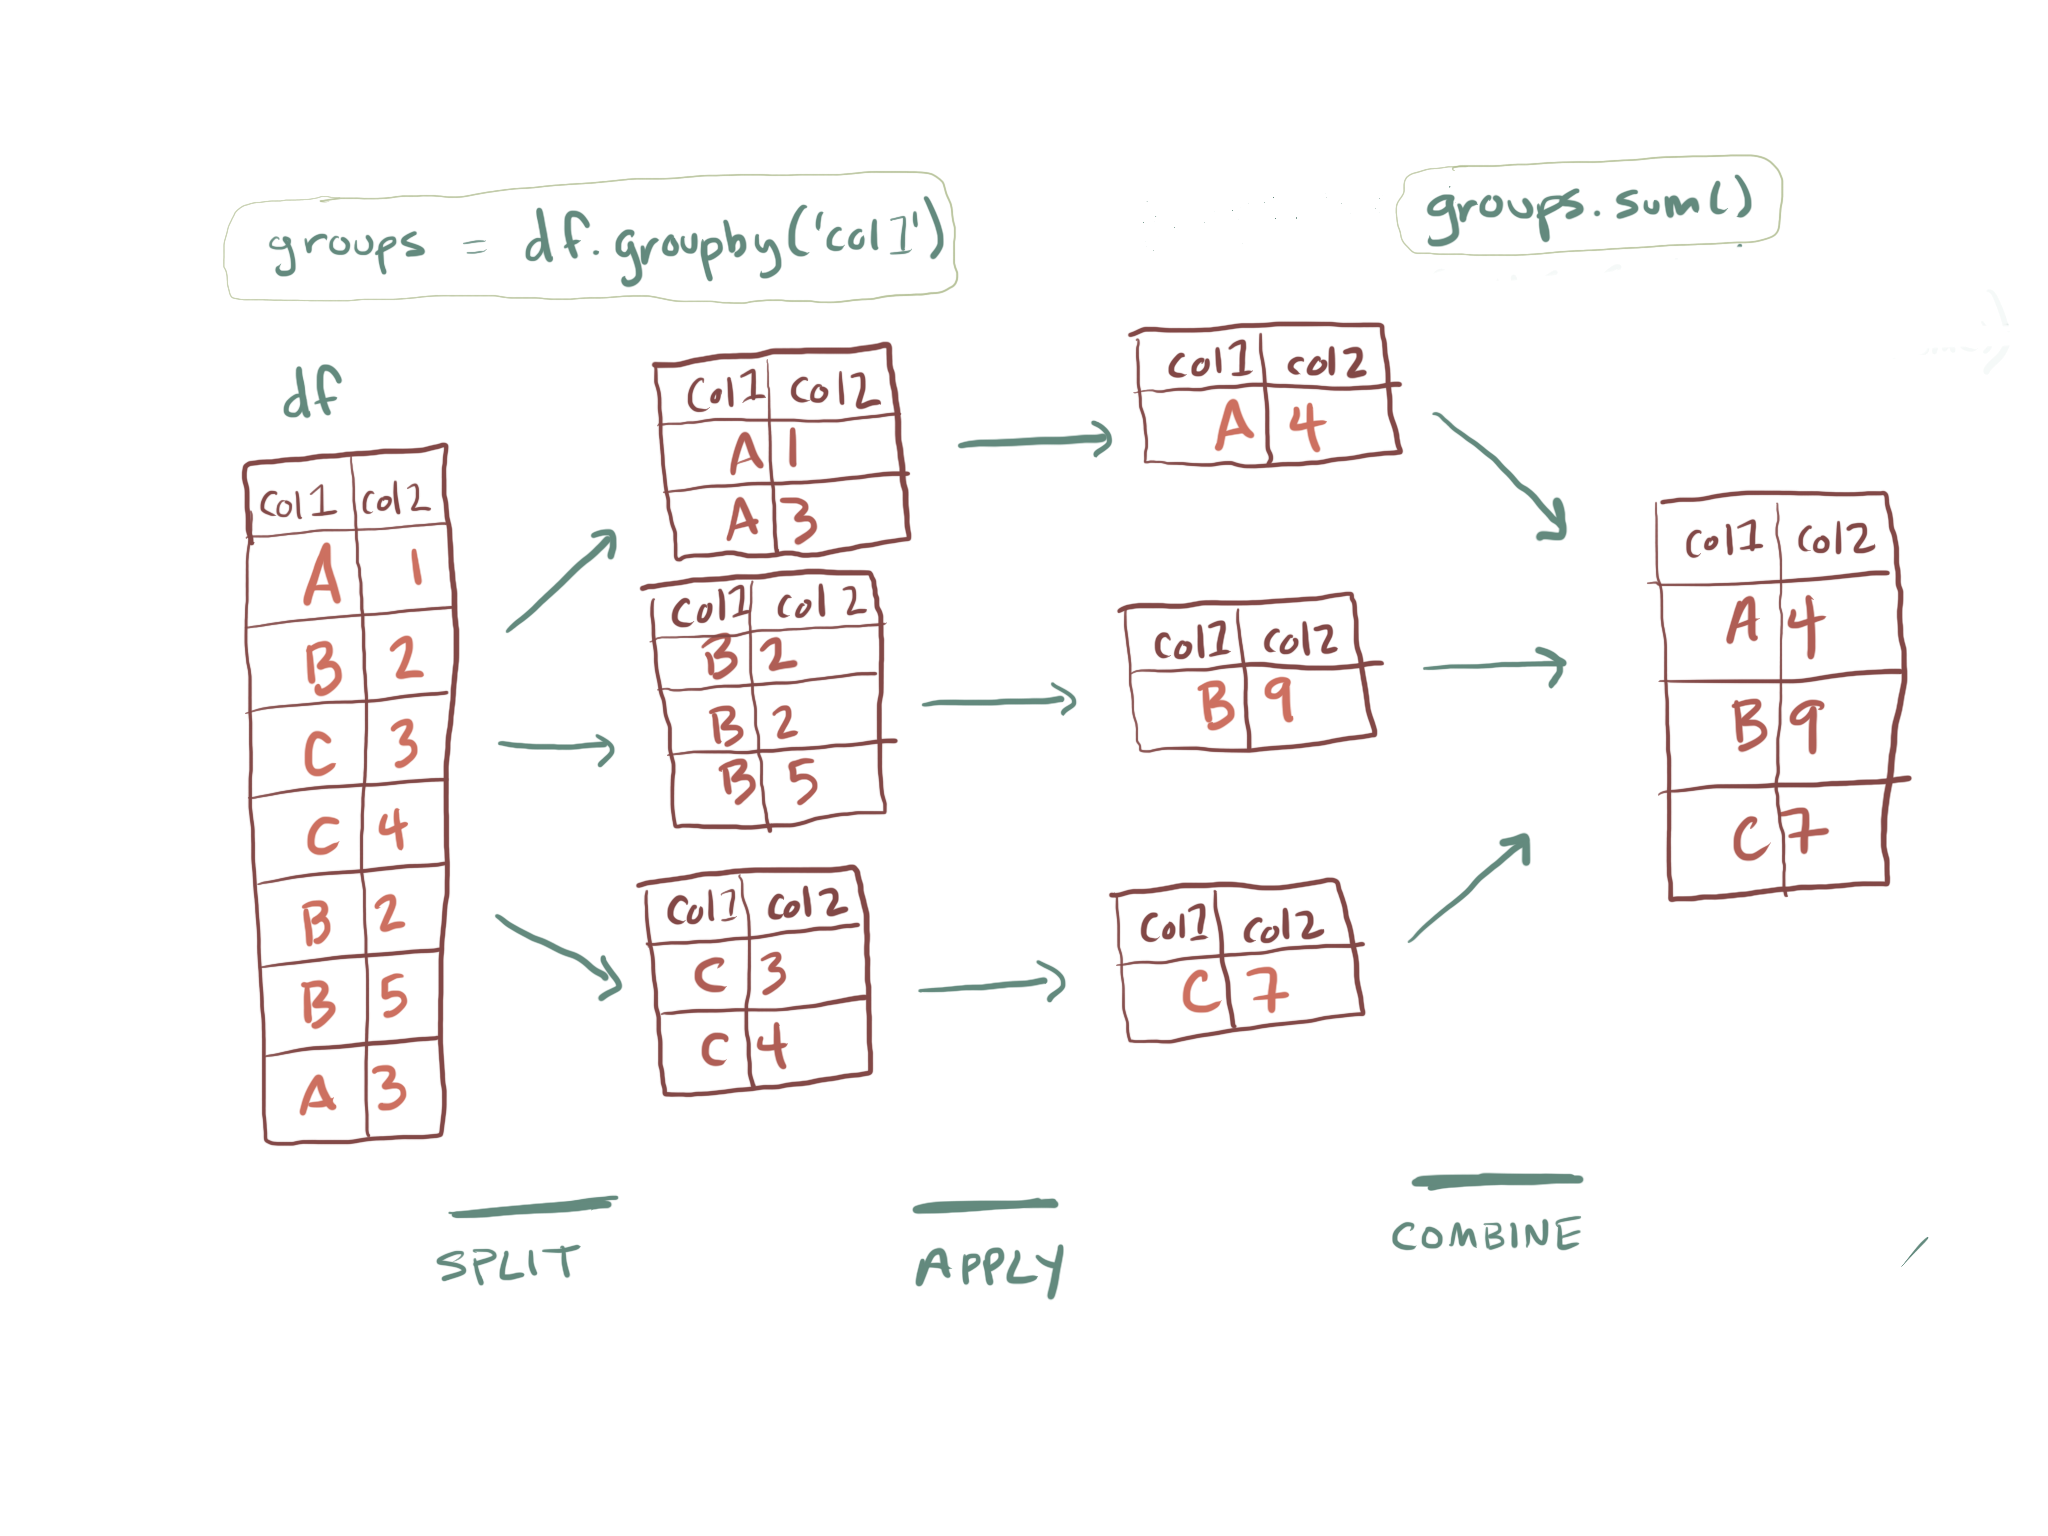 groups = df.groupby('col1')
groups.sum()
df
col1 col2
A 1
B 2
C 3
C 4
B 2
B 5
A 3
col1 col2
A 1
A 3
col1 col2
B 2
B 2
B 5
col1 col2
C 3
C 4
col1 col2
A 4
col1 col2
B 9
col1 col2
C 7
col1 col2
A 4
B 9
C 7
SPLIT
APPLY
COMBINE